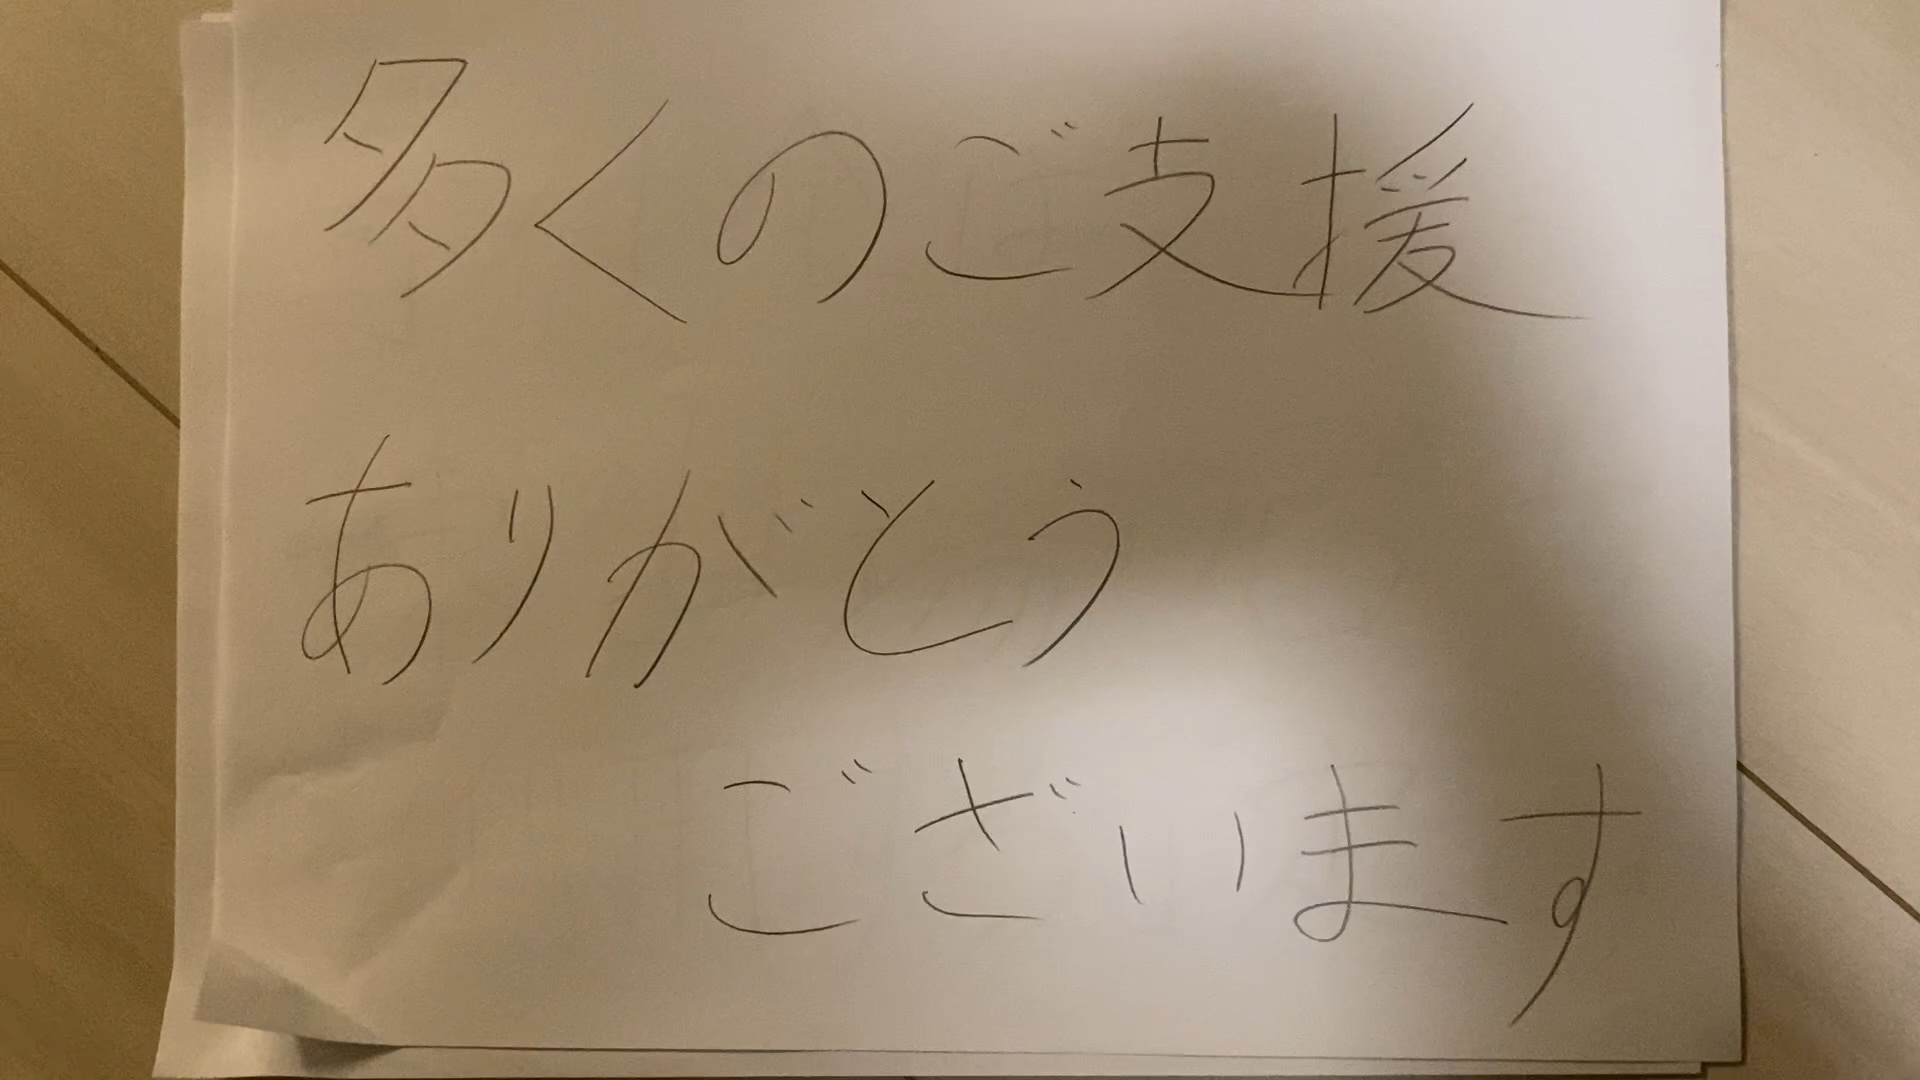 多くのご支援
ありがとう
ございます